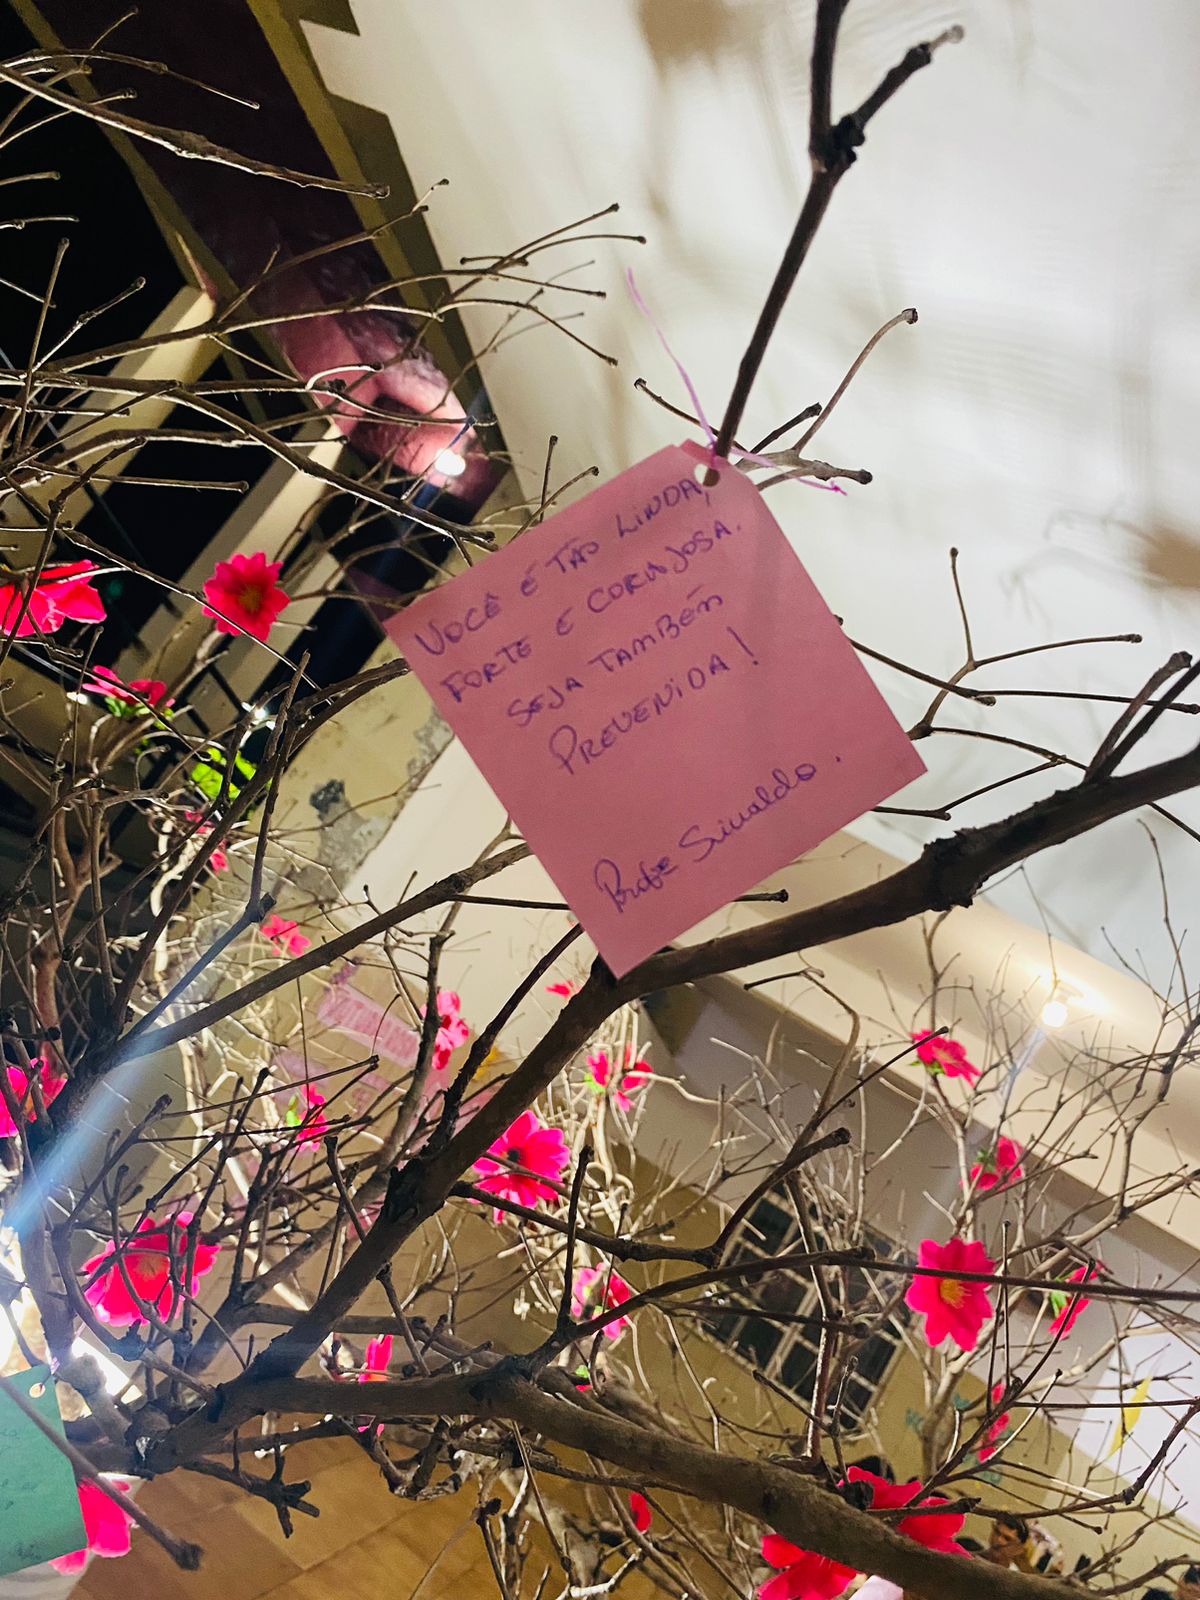 VOCÊ É TÃO LINDA,
FORTE E CORAJOSA.
SEJA TAMBÉM
PREVENIDA!
Profe Sinaldo.